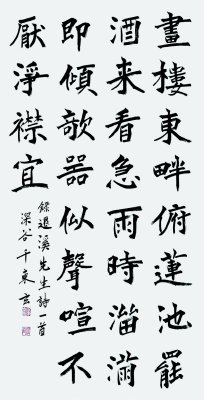 畫樓東畔俯蓮池罷
酒来看急雨時溜滿
即傾欹噐似聲喧不
厭淨襟宜
錄退溪先生詩一首
深谷千東玄